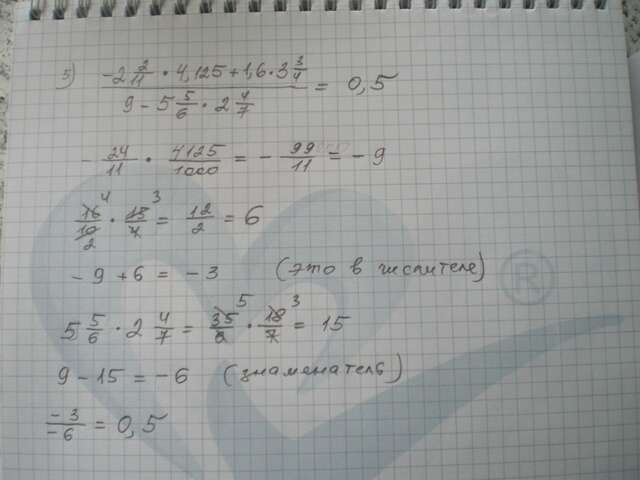 5) (-2 2/11 · 4,125 + 1,6 · 3 3/4) / (9 - 5 5/6 · 2 4/7) = 0,5
- 24/11 · 4125/1000 = - 99/11 = - 9
16/10 · 15/4 = 12/2 = 6
4 3 2
- 9 + 6 = - 3 (это в числителе)
5 5/6 · 2 4/7 = 35/6 · 18/7 = 15
5 3
9 - 15 = - 6 (знаменатель)
-3/-6 = 0,5
®